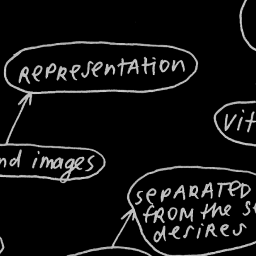 REPRESENTATION
vit
nd images
SEPARATED
FROM the s
desires